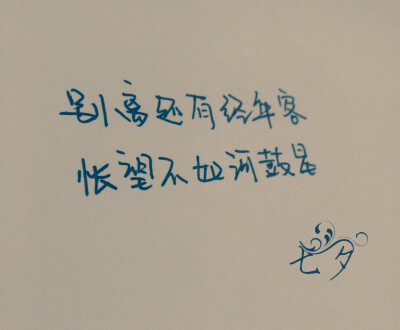 别离还有经年客
怅望不如河鼓星
七夕